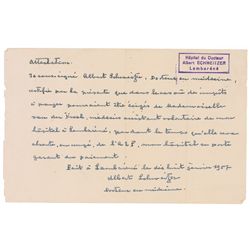 Attestation.
Hôpital du Docteur
Albert SCHWEITZER
Lambaréné
Je soussigné Albert Schweitzer, Docteur en médecine,
certifie par la présente que dans le cas où des impôts
à payer pourraient être exigés de Mademoiselle
van der médecin assistant volontaire de mon
hôpital à Lambaréné, pendant le temps qu'elle sera
absente, en congé, de l'A.E.F., mon hôpital en porte
garant du paiement.
Fait à Lambaréné le dix huit janvier 1957
Albert Schweitzer
Docteur en médecine.